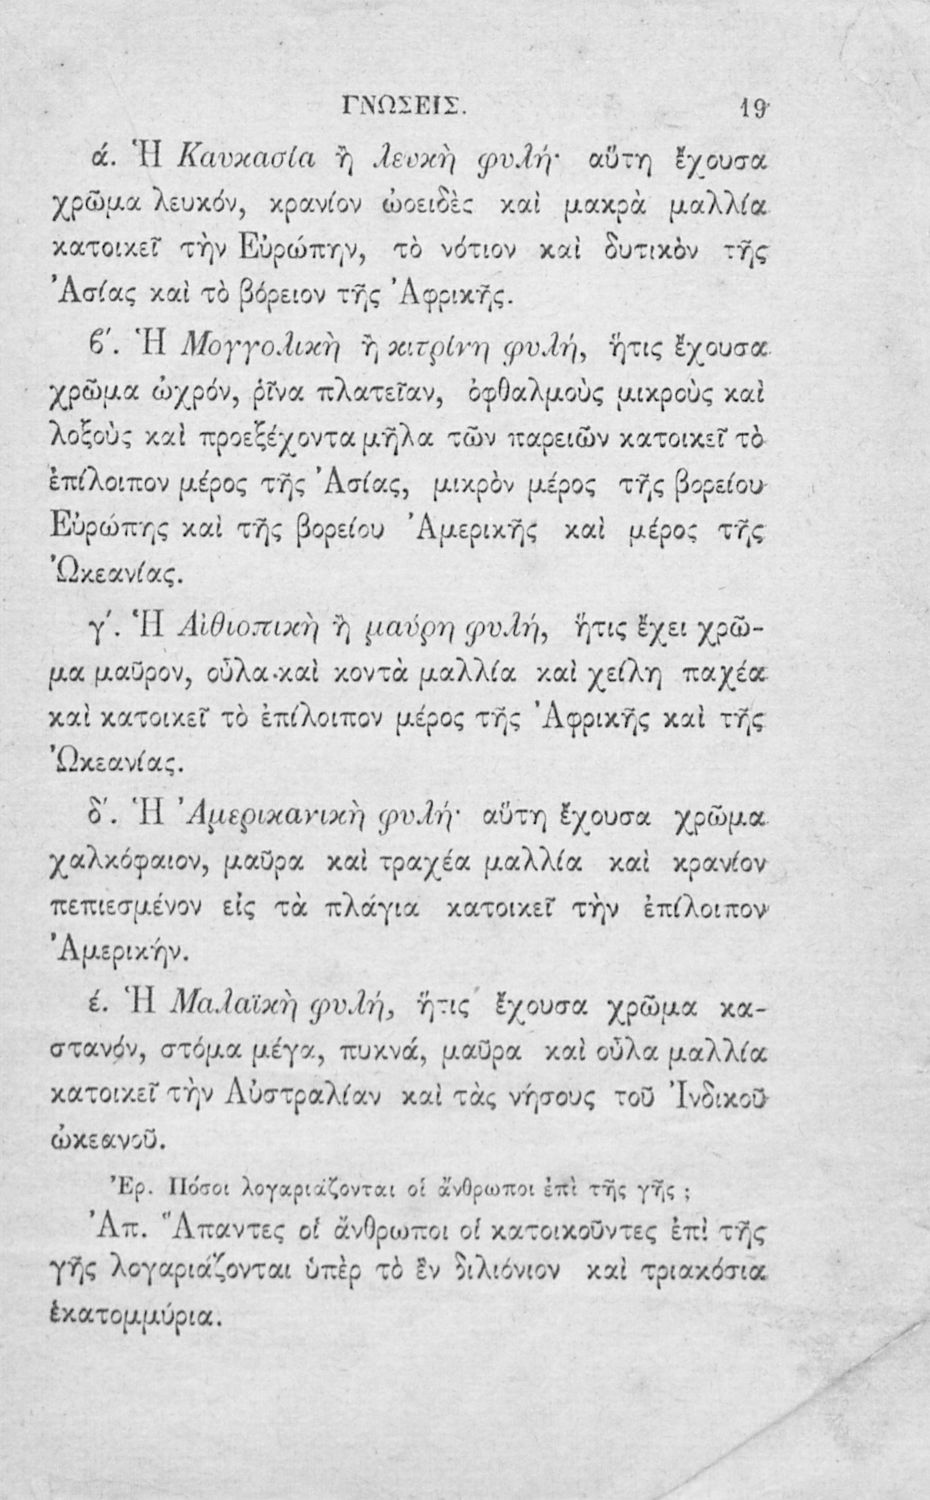 ΓΝΩΣΕΙΣ. 19
ά. Ἡ Καυκασία ἢ λευκὴ φυλή· αὕτη ἔχουσα
χρῶμα λευκόν, κρανίον ὠοειδὲς καὶ μακρὰ μαλλία
κατοικεῖ τὴν Εὐρώπην, τὸ νότιον καὶ δυτικὸν τῆς
Ἀσίας καὶ τὸ βόρειον τῆς Ἀφρικῆς.
ϐ΄. Ἡ Μογγολικὴ ἢ κιτρίνη φυλή, ἥτις ἔχουσα
χρῶμα ὠχρόν, ῥῖνα πλατεῖαν, ὀφθαλμοὺς μικροὺς καὶ
λοξοὺς καὶ προεξέχοντα μῆλα τῶν παρειῶν κατοικεῖ τὸ
ἐπίλοιπον μέρος τῆς Ἀσίας, μικρὸν μέρος τῆς βορείου
Εὐρώπης καὶ τῆς βορείου Ἀμερικῆς καὶ μέρος τῆς
Ὠκεανίας.
γ΄. Ἡ Αἰθιοπικὴ ἢ μαύρη φυλή, ἥτις ἔχει χρῶ-
μα μαῦρον, οὖλα καὶ κοντὰ μαλλία καὶ χείλη παχέα
καὶ κατοικεῖ τὸ ἐπίλοιπον μέρος τῆς Ἀφρικῆς καὶ τῆς
Ὠκεανίας.
δ΄. Ἡ Ἀμερικανικὴ φυλή· αὕτη ἔχουσα χρῶμα
χαλκόφαιον, μαῦρα καὶ τραχέα μαλλία καὶ κρανίον
πεπιεσμένον εἰς τὰ πλάγια κατοικεῖ τὴν ἐπίλοιπον
Ἀμερικήν.
έ. Ἡ Μαλαϊκὴ φυλή, ἥτις ἔχουσα χρῶμα κα-
στανόν, στόμα μέγα, πυκνά, μαῦρα καὶ οὖλα μαλλία
κατοικεῖ τὴν Αὐστραλίαν καὶ τὰς νήσους τοῦ Ἰνδικοῦ
ὠκεανοῦ.
Ἐρ. Πόσοι λογαριάζονται οἱ ἄνθρωποι ἐπὶ τῆς γῆς ;
Ἀπ. Ἅπαντες οἱ ἄνθρωποι οἱ κατοικοῦντες ἐπὶ τῆς
γῆς λογαριάζονται ὑπὲρ τὸ ἓν διλιόνιον καὶ τριακόσια
ἑκατομμύρια.